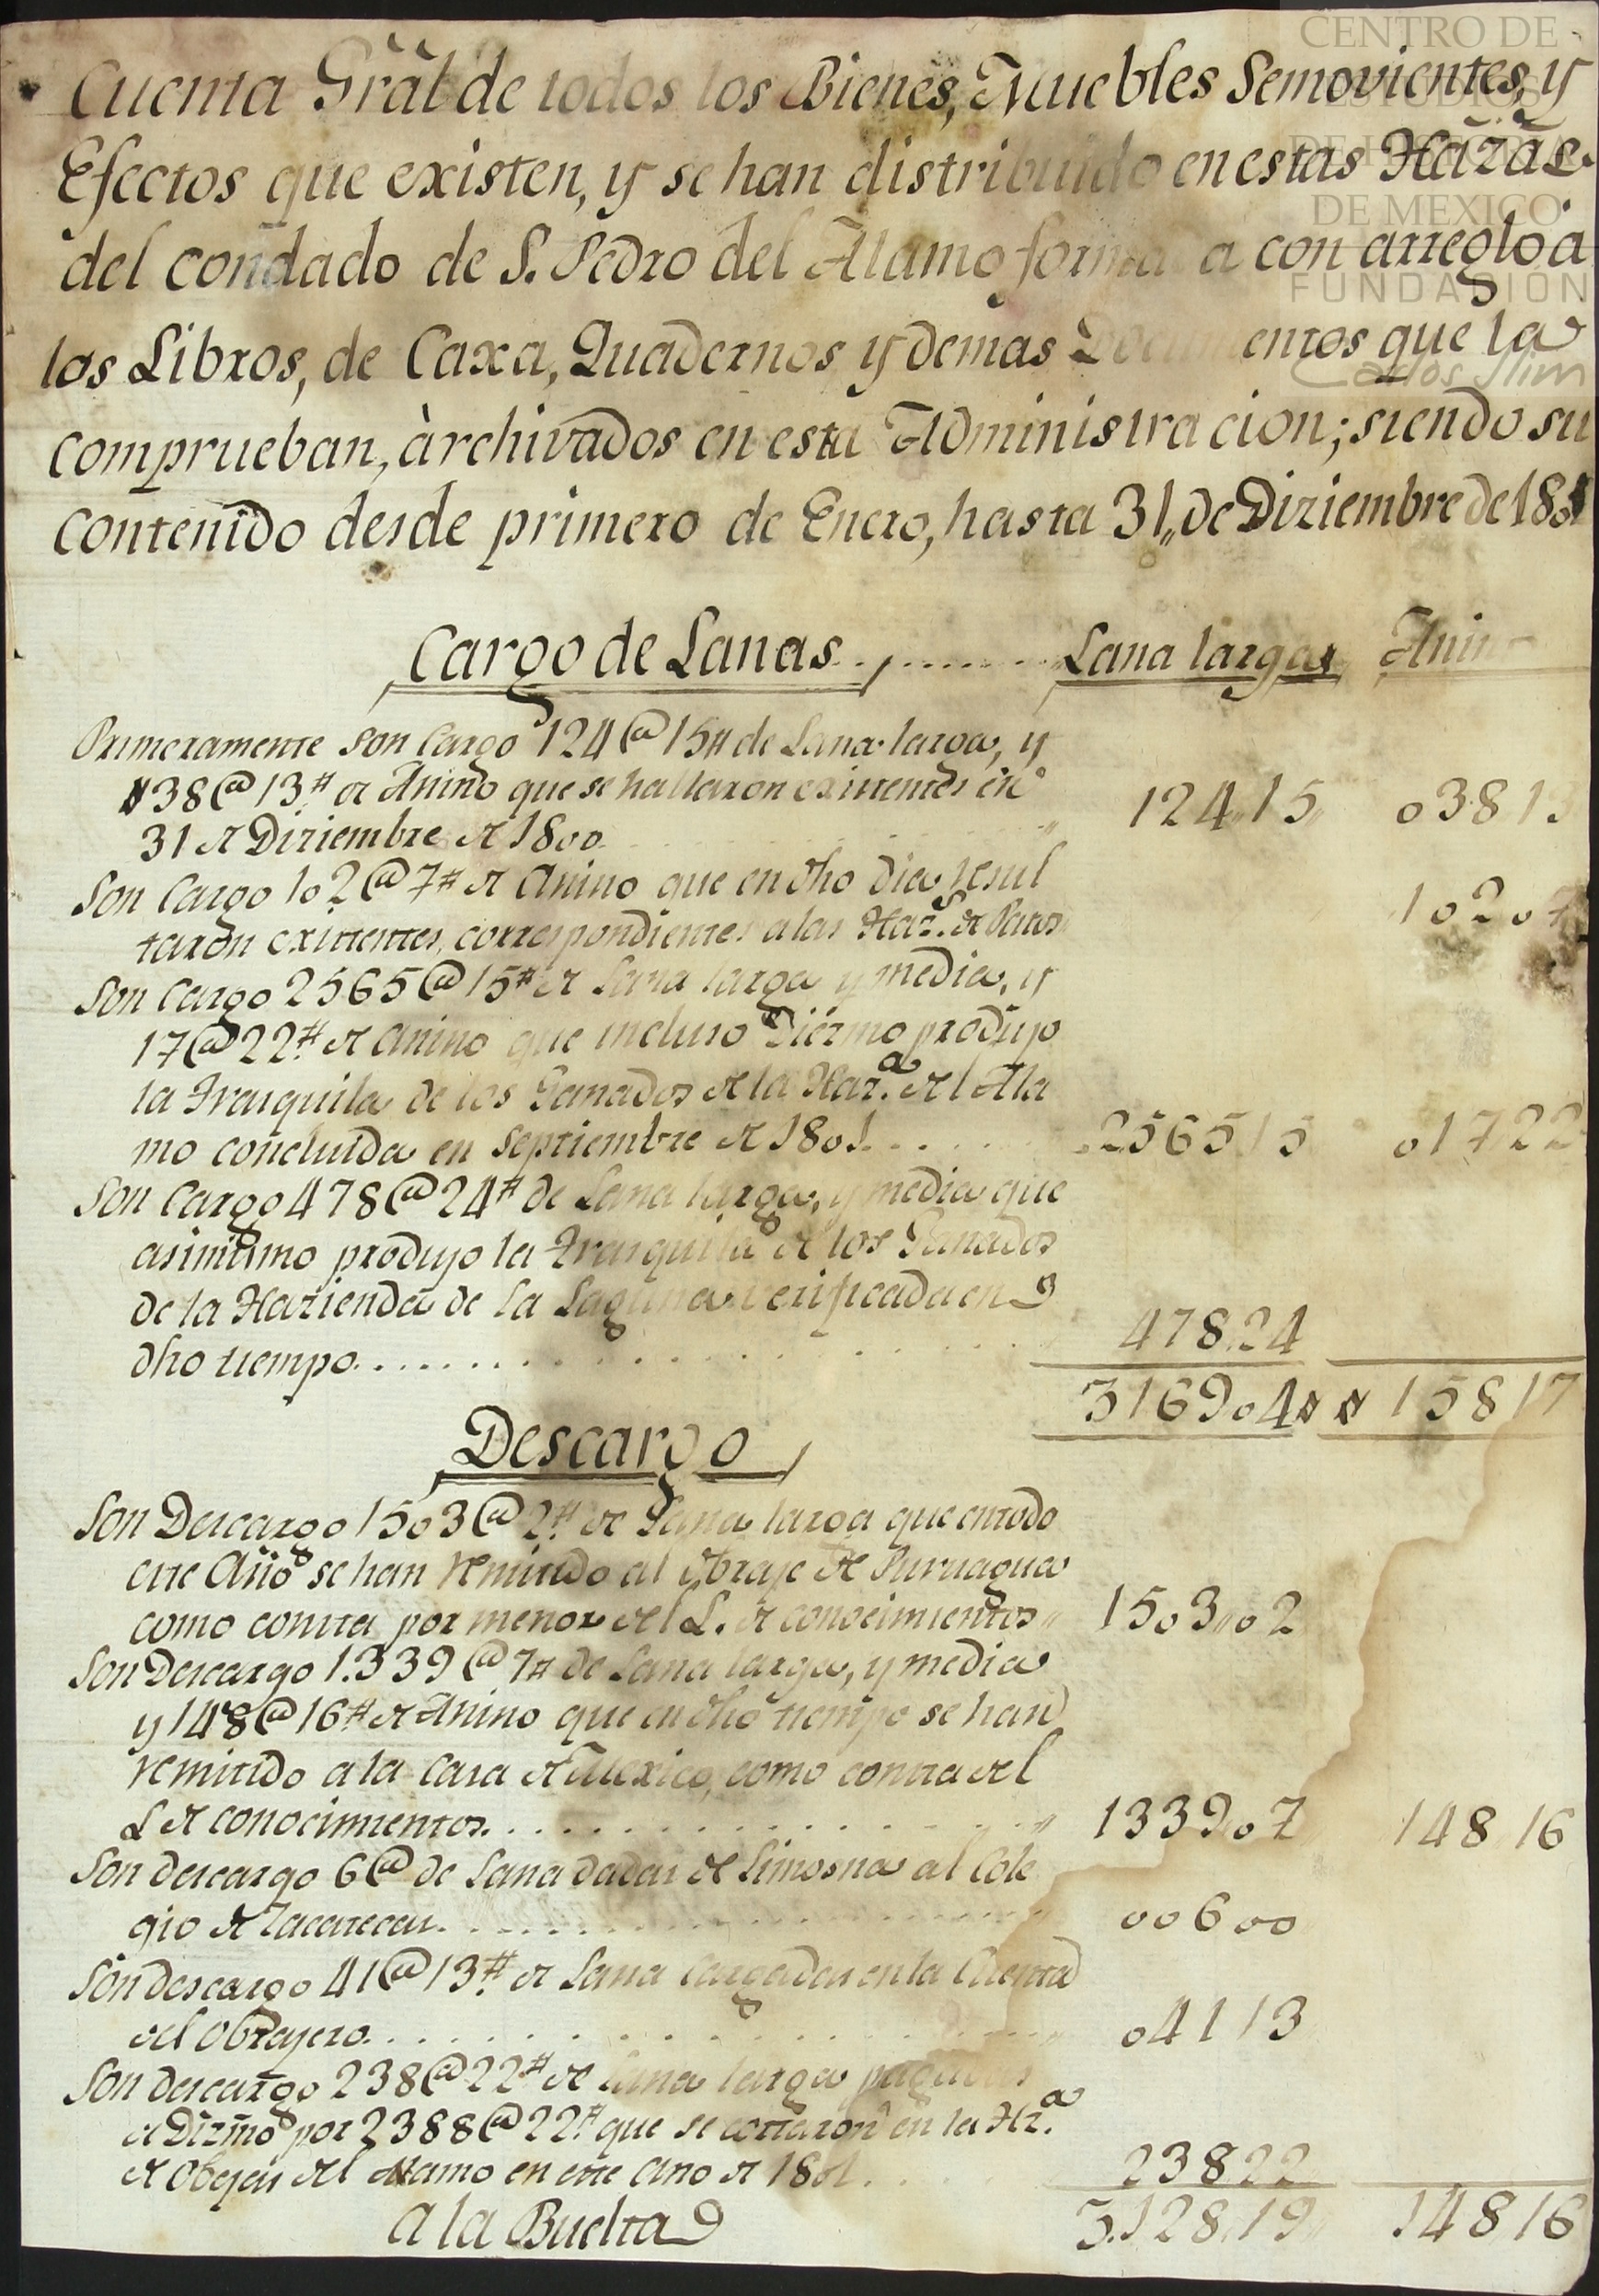 Cuenta Grāl de todos los Bienes, Muebles Semovientes, y
Efectos que existen, y se han distribuido en estas Hazas.
del Condado de S. Pedro del Alamo forma a con arreglo a
los Libros, de Caxa, Quadernos y demas entos que la
comprueban, àrchivados en esta Administracion; siendo su
contenido desde primero de Enero, hasta 31,, de Diziembre de 1801
Cargo de Lanas......... Lana larga Anin
Primeramente son Cargo 124@15# de Lana larga, y
38@13# de Anino que se hallaron existentes en
31 de Diziembre de 1800 124,,15,, 03813
Son Cargo 102@7# de Anino que en dho dia resul
taron existentes, correspondientes a las Haz.s de Patos 10207
Son Cargo 2565@15# de Lana larga y media, y
17@22# de Anino que incluso Diezmo produjo
la Trasquila de los Ganados de la Haz.a del Ala
mo concluida en Septiembre de 1801...... 256515 01722
Son Cargo 478@24# de Lana larga, y media que
asimismo produjo la Trasquila de los Ganados
de la Hazienda de la Laguna verificada en
dho tiempo................ 47824
316904 15817
Descargo
Son Descargo 1503@2# de Lana larga que en todo
este Año se han remitido al Obraje de Puruagua
como consta por menor del L. de conocimientos,, 1503,,02
Son Descargo 1.339@7# de Lana larga, y media
y 148@16# de Anino que en dho tiempo se han
remitido a la Casa de Mexico, como consta del
L de conocimientos................ 133907 14816
Son descargo 6@ de Lana dadas de Limosna al Cole
gio de Zacatecas................ 00600
Son descargo 41@13# de Lana Cargadas en la Cuenta
del Obrajero................ 04113
Son descargo 238@22# de Lana larga pagadas
de Dizmo por 2388@22# que se cortaron en la Hz.a
de Obejas del Alamo en este Ano de 1801.... 23822
A la Buelta 3.12819 14816
CENTRO DE
ESTUDIOS
DE HISTORIA
DE MEXICO
FUNDACIÓN
Carlos Slim